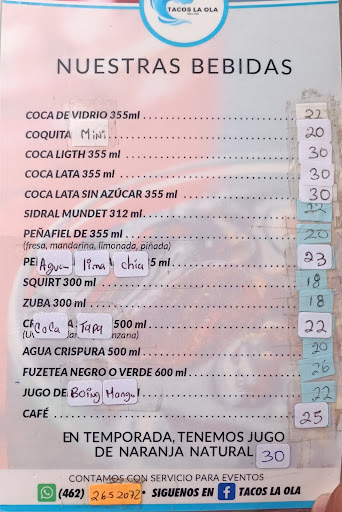 TACOS LA OLA
NUESTRAS BEBIDAS
COCA DE VIDRIO 355ml 22
COQUITA Mini 20
COCA LIGTH 355 ml 30
COCA LATA 355 ml 30
COCA LATA SIN AZÚCAR 355 ml 30
SIDRAL MUNDET 312 ml 22
PEÑAFIEL DE 355 ml 20
(fresa, mandarina, limonada, piñada)
Agua lima chia 5 ml 23
SQUIRT 300 ml 18
ZUBA 300 ml 18
Coca Tapa 500 ml 22
AGUA CRISPURA 500 ml 20
FUZETEA NEGRO O VERDE 600 ml 26
JUGO DE Boing Mango 22
CAFÉ 25
EN TEMPORADA, TENEMOS JUGO
DE NARANJA NATURAL 30
CONTAMOS CON SERVICIO PARA EVENTOS
(462) 265 2072 • SIGUENOS EN f TACOS LA OLA